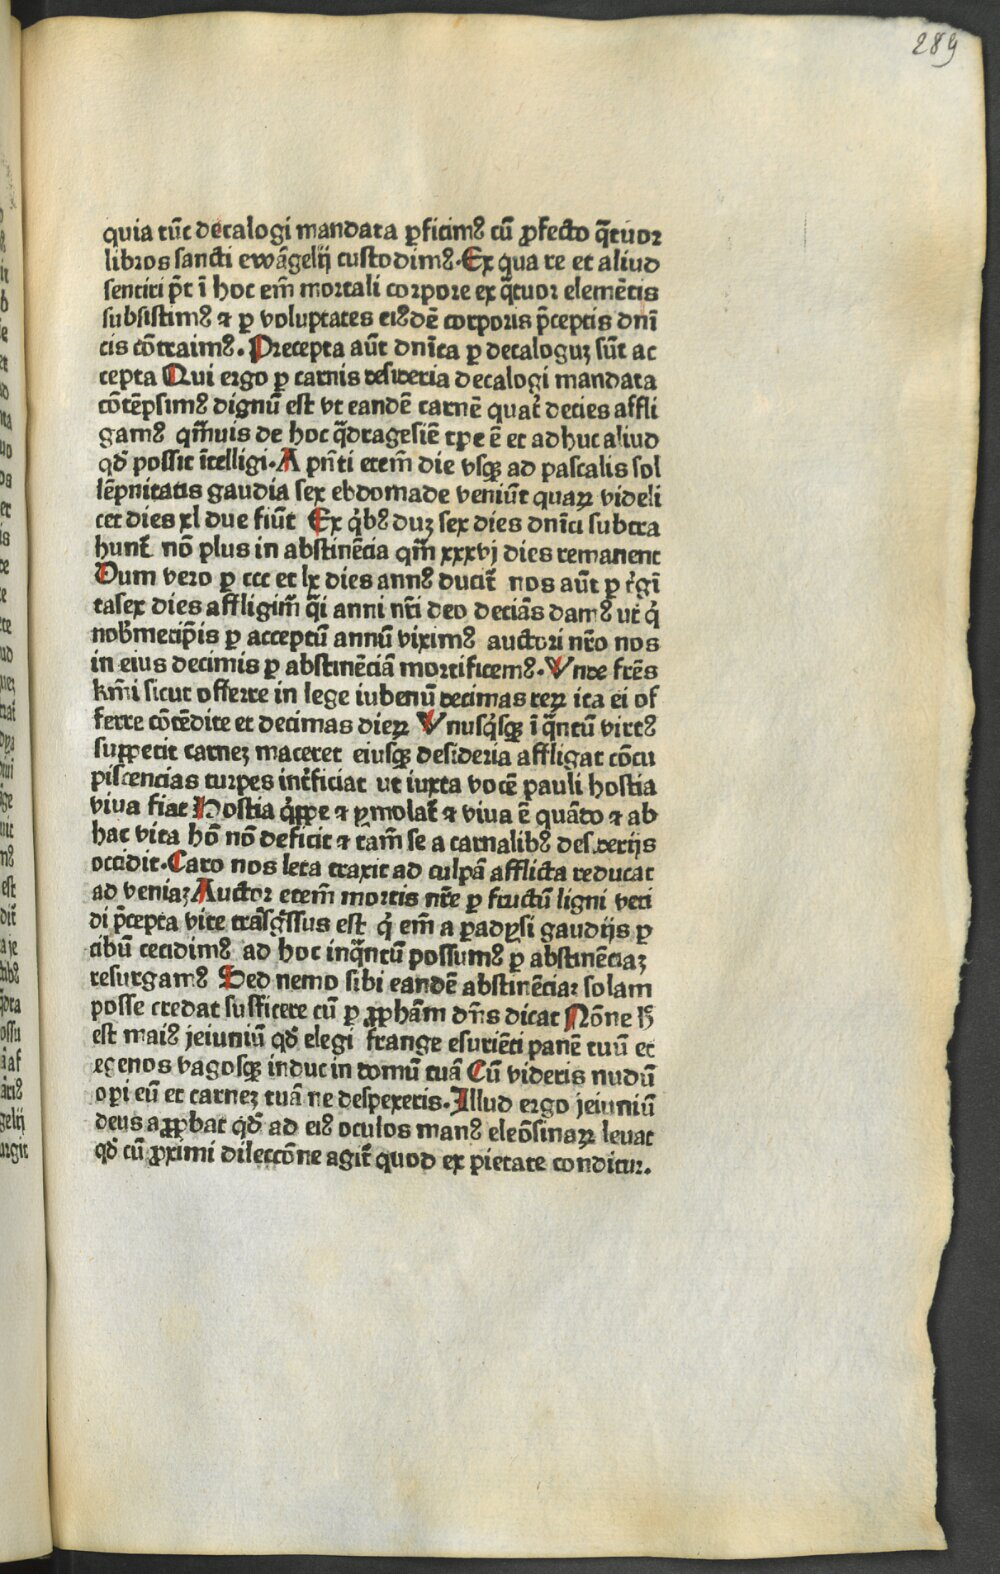 289
quia tūc decalogi mandata ꝑficimꝰ cū ꝓfecto q̄tuor
libros sancti ewāgelij custodimꝰ. Ex qua re et aliud
sentiri p̄t ī hoc em̄ mortali corpore ex q̄tuor elemētis
subsistimꝰ ⁊ ꝑ voluptates eiꝰdē corporis p̄ceptis dnī
cis cōtraimꝰ. Precepta aūt dnīca ꝑ decaloguꝫ sūt ac
cepta Qui ergo ꝑ carnis desideria decalogi mandata
cōtēpsimꝰ dignū est vt eandē carnē quat͛ decies affli
gamꝰ qm̄uis de hoc q̄dragesiē tꝑe ē et adhuc aliud
qd̄ possit ītelligi. A pn̄ti etem̄ die vsqꝫ ad pascalis sol
lēpnitatis gaudia sex ebdomade veniūt quaꝝ videli
cet dies xl due fiūt Ex qͥbꝰ duꝫ sex dies dnīci subtra
hunt͛ nō plus in abstinēcia qm̄ xxxvj dies remanent
Dum vero ꝑ ccc et lx dies annꝰ ducit͛ nos aūt ꝑ tͥgī
tasex dies affligim̄ q̄i anni nr̄i deo deciās damꝰ ut qͥ
nob̄metip̄is ꝑ acceptū annū viximꝰ auctori nr̄o nos
in eius decimis ꝑ abstinēciā mortificemꝰ. Vnde fr̄es
km̄i sicut offerre in lege iubenū decimas reꝝ ita ei of
ferre cōtēdite et decimas dieꝝ Vnusqͥsqꝫ ī q̄ntū virtꝰ
suꝑpetit carneꝫ maceret eiusqꝫ desideria affligat cōcu
piscencias turpes int͛ficiat ut iuxta vocē pauli hostia
viva fiat Hostia qͥꝑpe ⁊ ymolat͛ ⁊ viva ē quādo ⁊ ab
hac vita hō nō deficit ⁊ tam̄ se a carnalibꝰ desiderijs
occidit. Caro nos leta traxit ad culpā afflicta reducat
ad veniaꝫ Auctor etem̄ mortis nr̄e ꝑ fructū ligni veti
di p̄cepta vite trāsgr̄ssus est qͥ em̄ a ꝑadysi gaudijs ꝑ
cibū cecidimꝰ ad hoc inq̄ntū possumꝰ ꝑ abstinēciaꝫ
resurgamꝰ Sed nemo sibi eandē abstinēciaꝫ solam
posse credat sufficere cū ꝑ ꝓpham̄ dn̄s dicat Nōne h̄
est maiꝰ jeiuniū qd̄ elegi frange esuriēti panē tuū et
egenos vagosqꝫ induc in domū tuā Cū videris nudū
operi eū et carneꝫ tuā ne despexeris. Illud ergo jeiuniū
deus aꝓbat qd̄ ad eiꝰ oculos manꝰ eleōsinaꝝ levat
qd̄ cū ꝓximi dileccōne agit͛ quod ex pietate conditur.